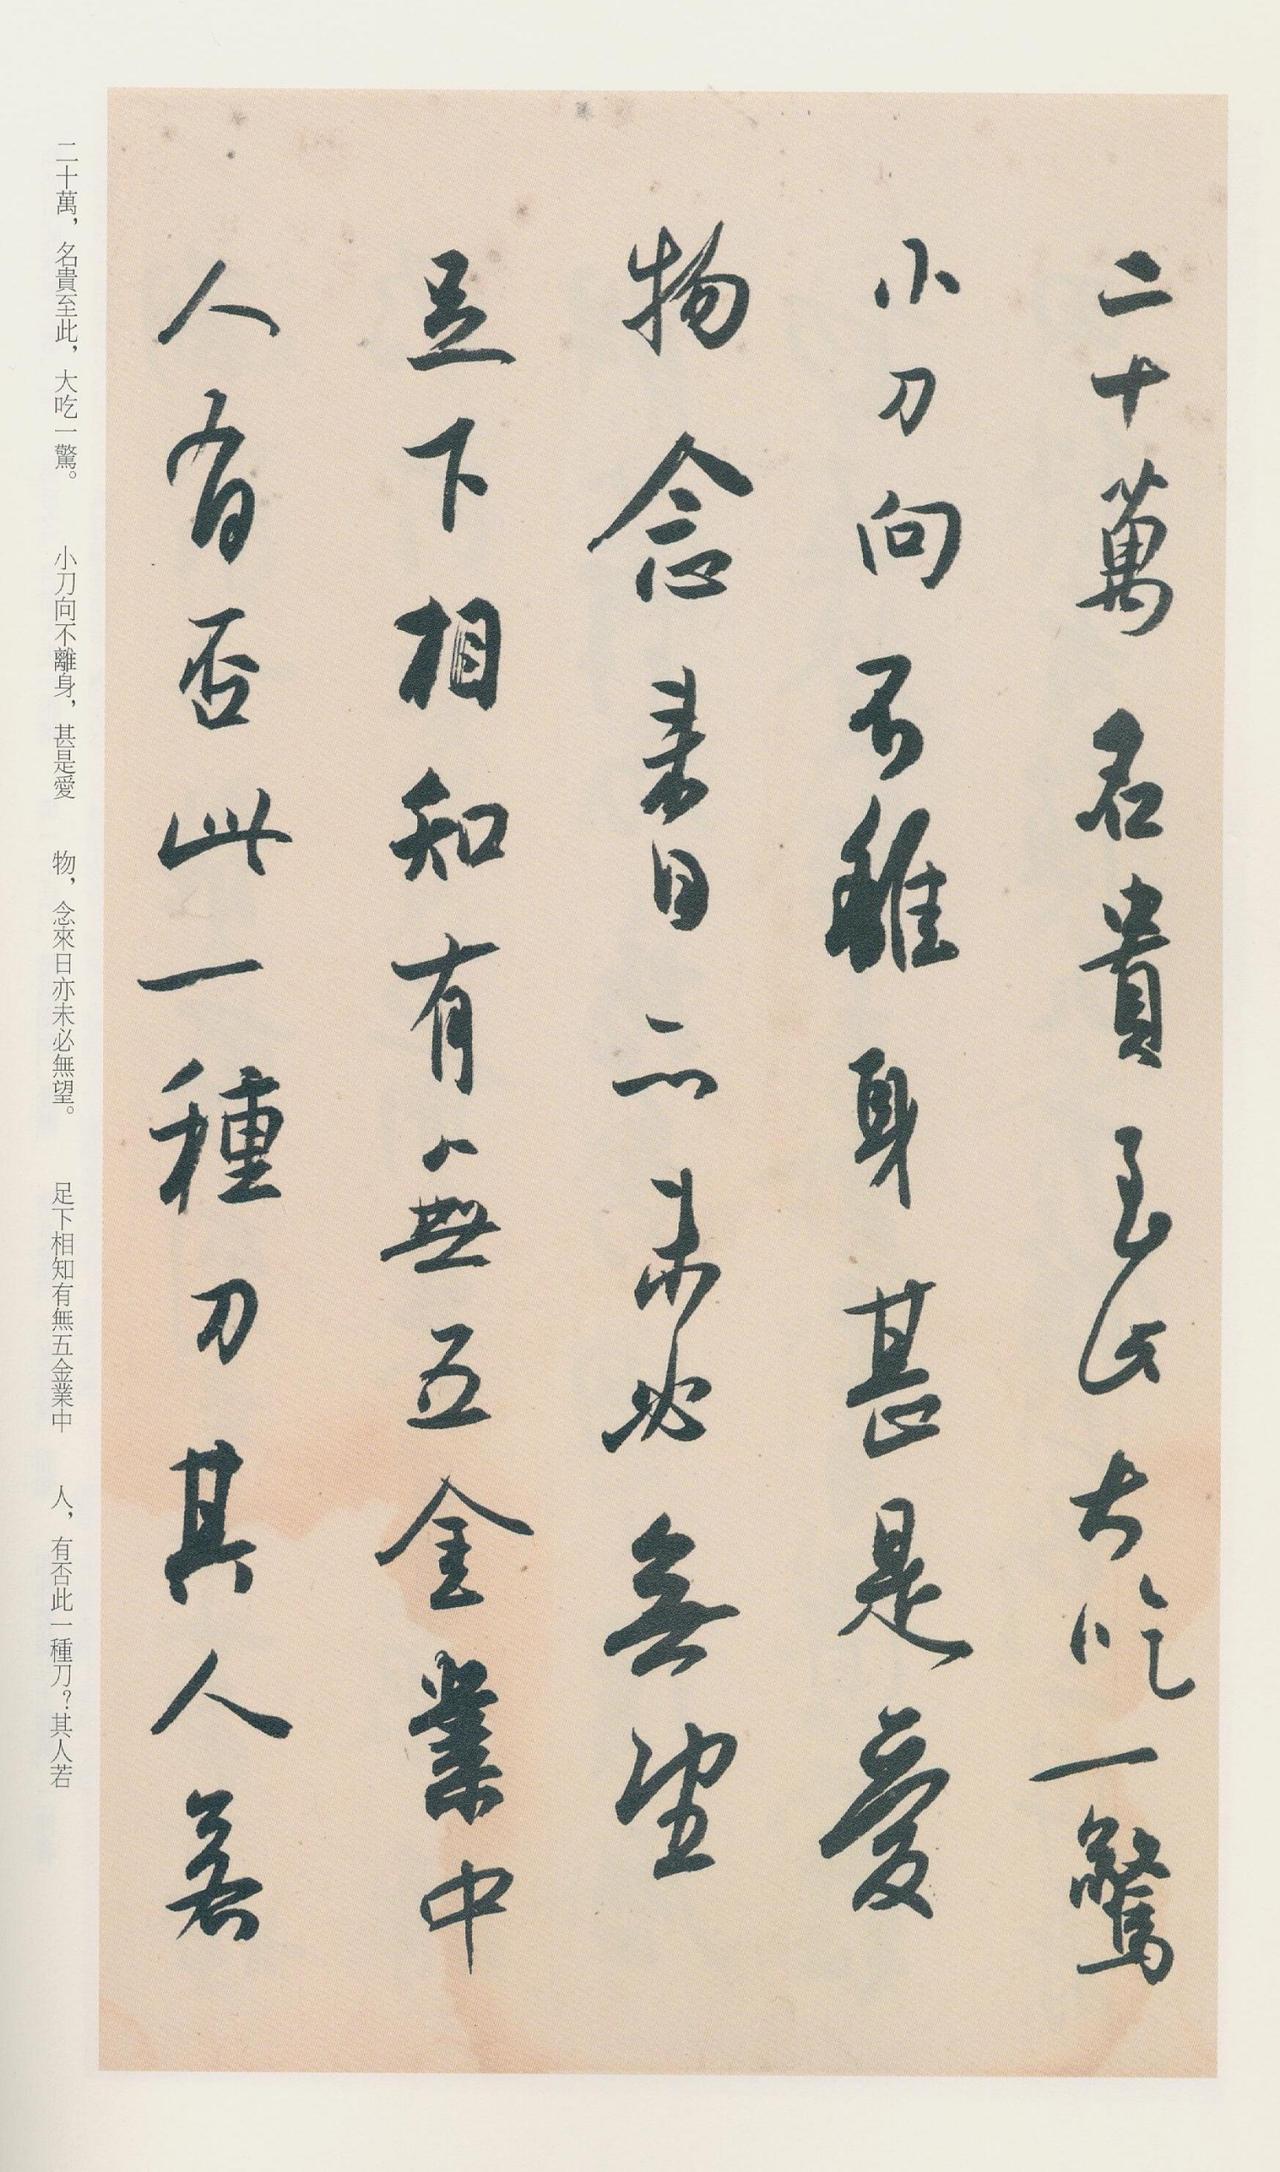 二十萬名貴至此大吃一驚
小刀向不離身甚是愛
物念来日亦未必無望
足下相知有無五金業中
人有否此一種刀其人若
二十萬，名貴至此，大吃一驚。 小刀向不離身，甚是愛 物，念來日亦未必無望。 足下相知有無五金業中 人，有否此一種刀？其人若